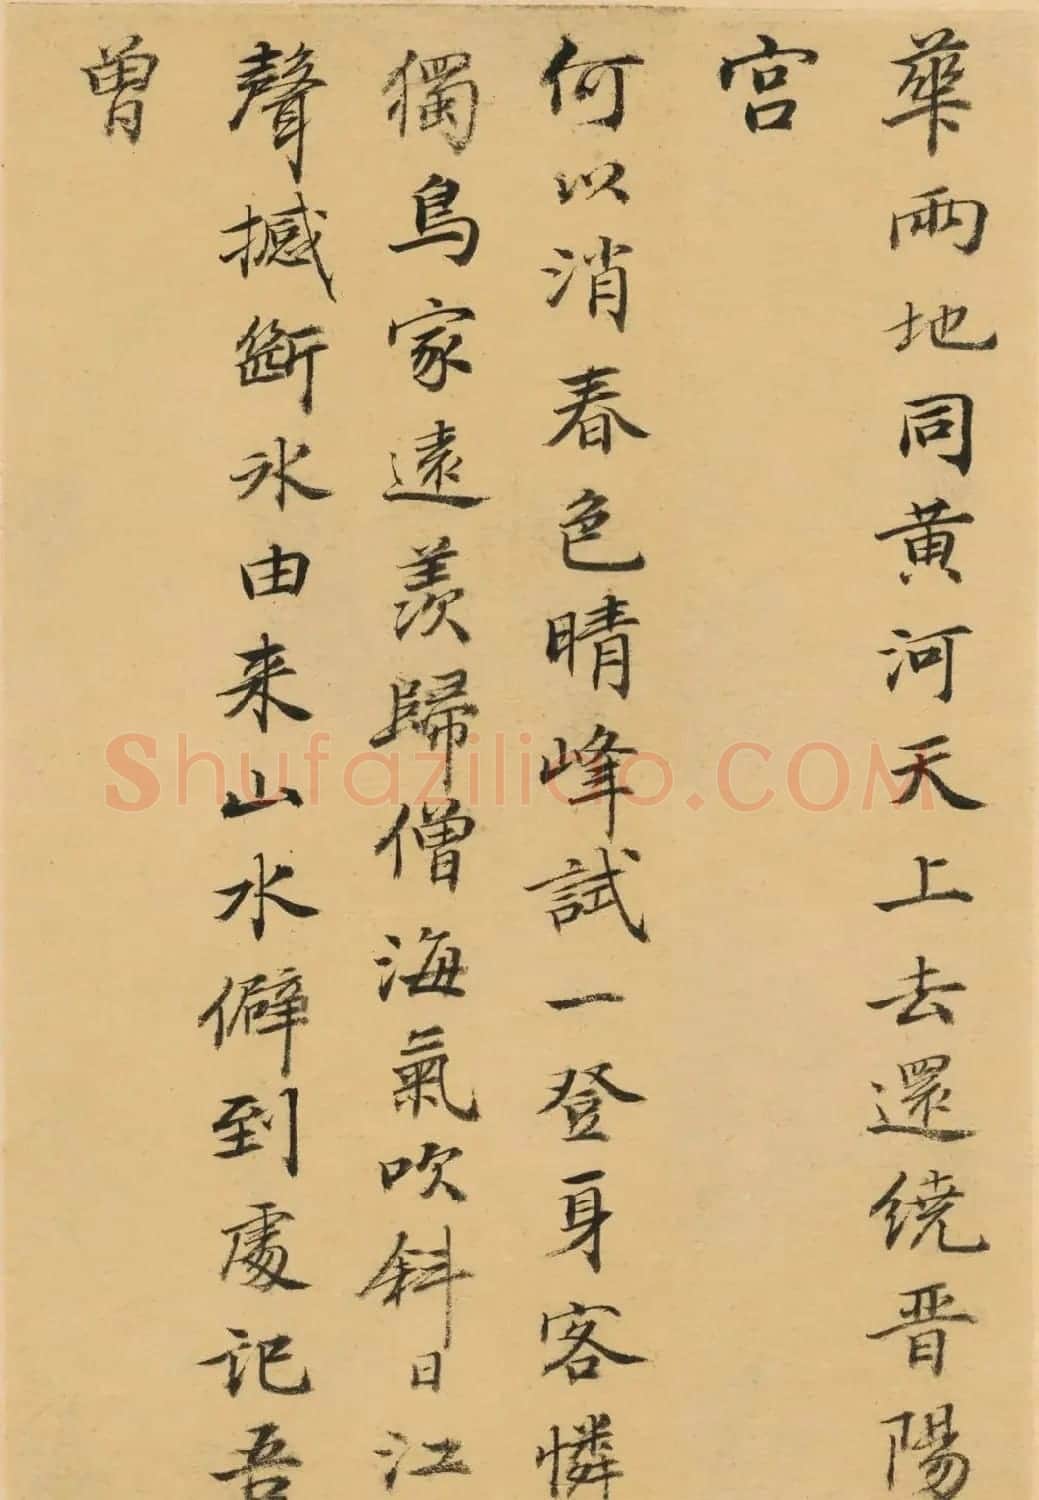 華兩地同黄河天上去還繞晋陽
宫
何以消春色晴峰試一登身客憐
獨鳥家遠羨歸僧海氣吹斜日江
聲撼斷冰由来山水僻到處记吾
曾
Shufaziliao.COM